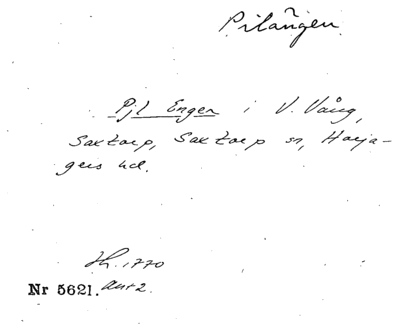 Pilängen
Pjl Engen i V. Vång,
Saxtorp, Saxtorp sn, Harja-
gers hd.
Nr 5621.